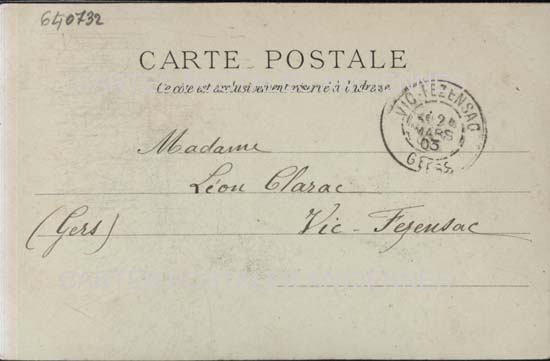 640732
CARTE POSTALE
Ce côté est exclusivement réservé à l'adresse
VIC-FEZENSAC
MARS
03
GERS
Madame
Léon Clarac
(Gers) Vic-Fezensac